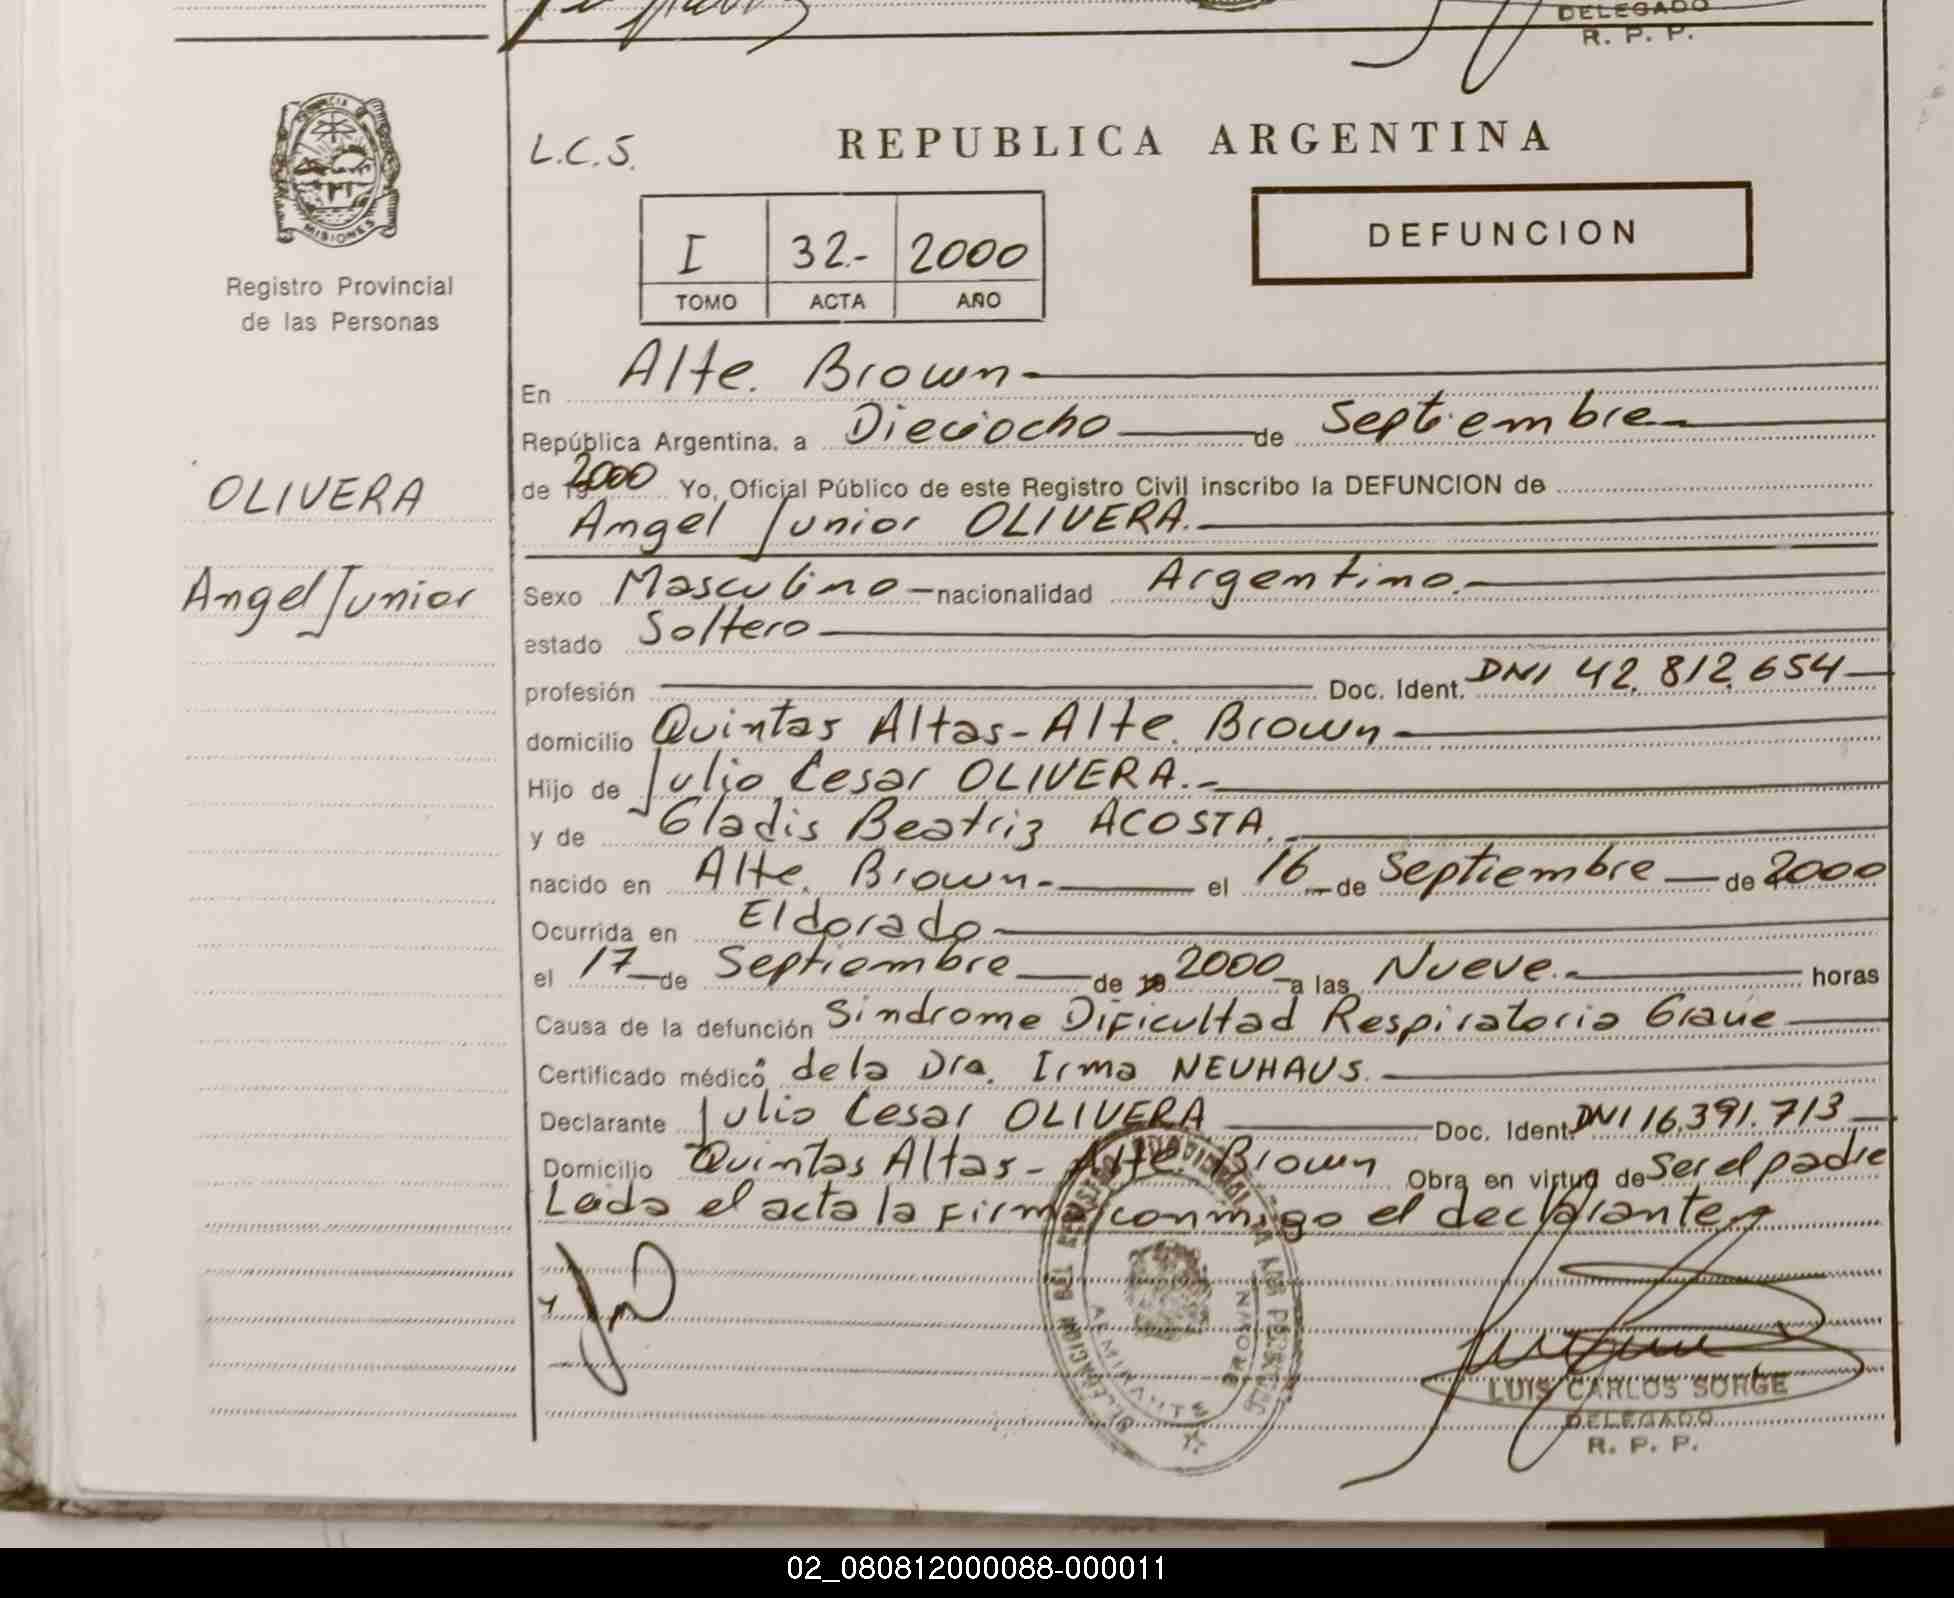 DELEGADO
R. P. P.
PROVINCIA DE
MISIONES
Registro Provincial
de las Personas
OLIVERA
Angel Junior
L.C.S.
REPUBLICA ARGENTINA
I 32.- 2000
TOMO ACTA AÑO
DEFUNCION
En Alte. Brown-
República Argentina, a Dieciocho de Septiembre
de 19 2000 Yo, Oficial Público de este Registro Civil inscribo la DEFUNCION de
Angel Junior OLIVERA.
Sexo Masculino - nacionalidad Argentino.-
estado Soltero
profesión Doc. Ident. DNI 42.812.654
domicilio Quintas Altas - Alte. Brown
Hijo de Julio Cesar OLIVERA.-
y de Gladis Beatriz ACOSTA.
nacido en Alte. Brown.- el 16 de Septiembre de 2000
Ocurrida en Eldorado
el 17 de Septiembre de 19 2000 a las Nueve.- horas
Causa de la defunción Sindrome Dificultad Respiratoria Grave
Certificado médico de la Dra. Irma NEUHAUS.
Declarante Julio Cesar OLIVERA Doc. Ident. DNI 16.391.713
Domicilio Quintas Altas - Alte. Brown Obra en virtud de Ser el padre
Leida el acta la firma conmigo el declarante
LUIS CARLOS SORGE
DELEGADO
R. P. P.
02_080812000088-000011